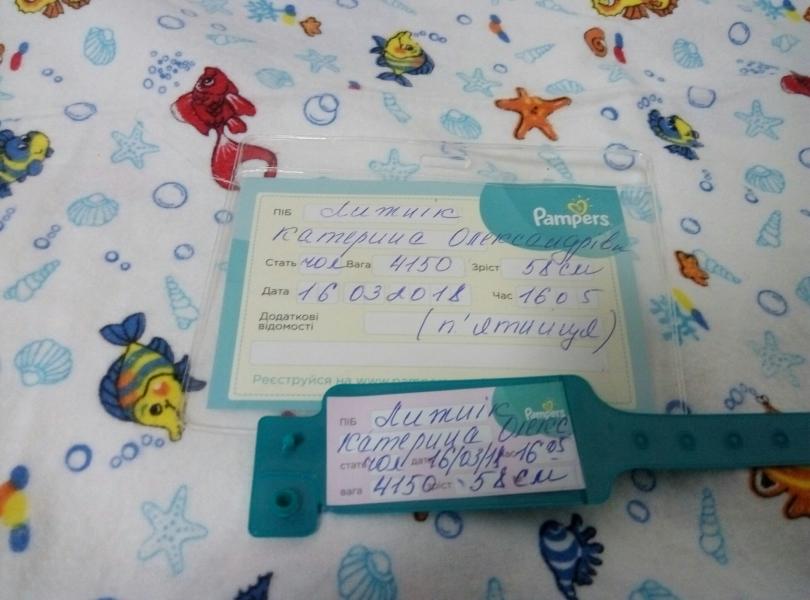 Pampers
ПІБ Лижнік
Катерина Олександрівн
Стать чол Вага 4150 Зріст 58 см
Дата 16 03 2018 Час 16 05
Додаткові відомості (п'ятниця)
Реєструйся на www.pampe
ПІБ Лижнік Pampers
Катерина Олекс
стать чол дата 16/03/18 час 16 05
вага 4150 зріст 58 см